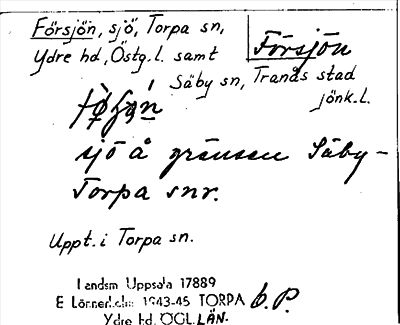 Försjön, sjö, Torpa sn, Försjön
Ydre hd, Östg. l. samt
Säby sn, Tranås stad
jönk. l.
sjö å gränsen Säby-
Torpa snr.
Uppt. i Torpa sn.
Landsm Uppsala 17889
E 1943-45 TORPA b. P.
Ydre hd. ÖGL. LÄN.